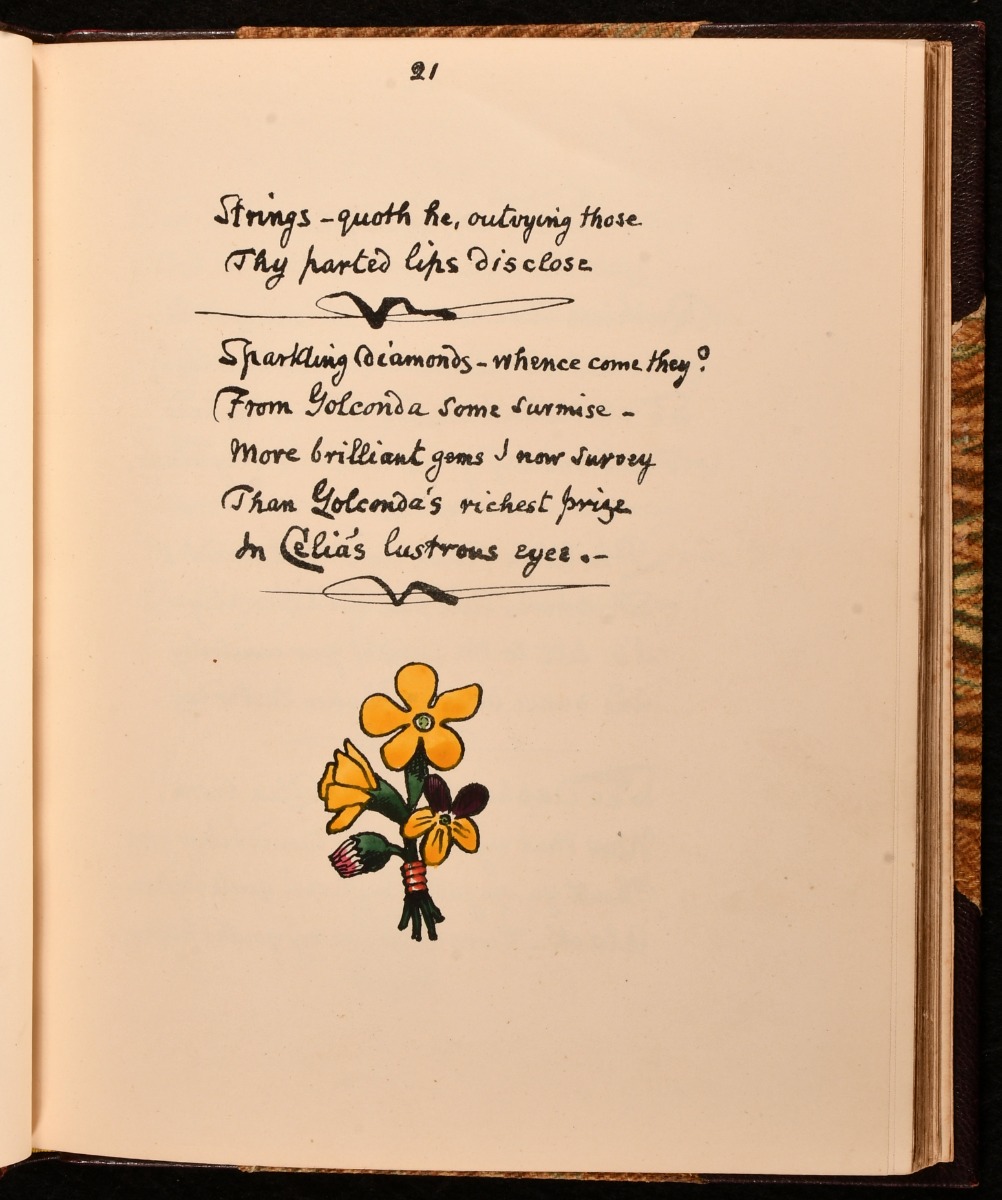 21
Strings – quoth he, outvying those
Thy parted lips disclose
Sparkling diamonds – whence come they?
From Golconda some surmise –
More brilliant gems I now survey
Than Golconda's richest prize
In Celia's lustrous eyes . –